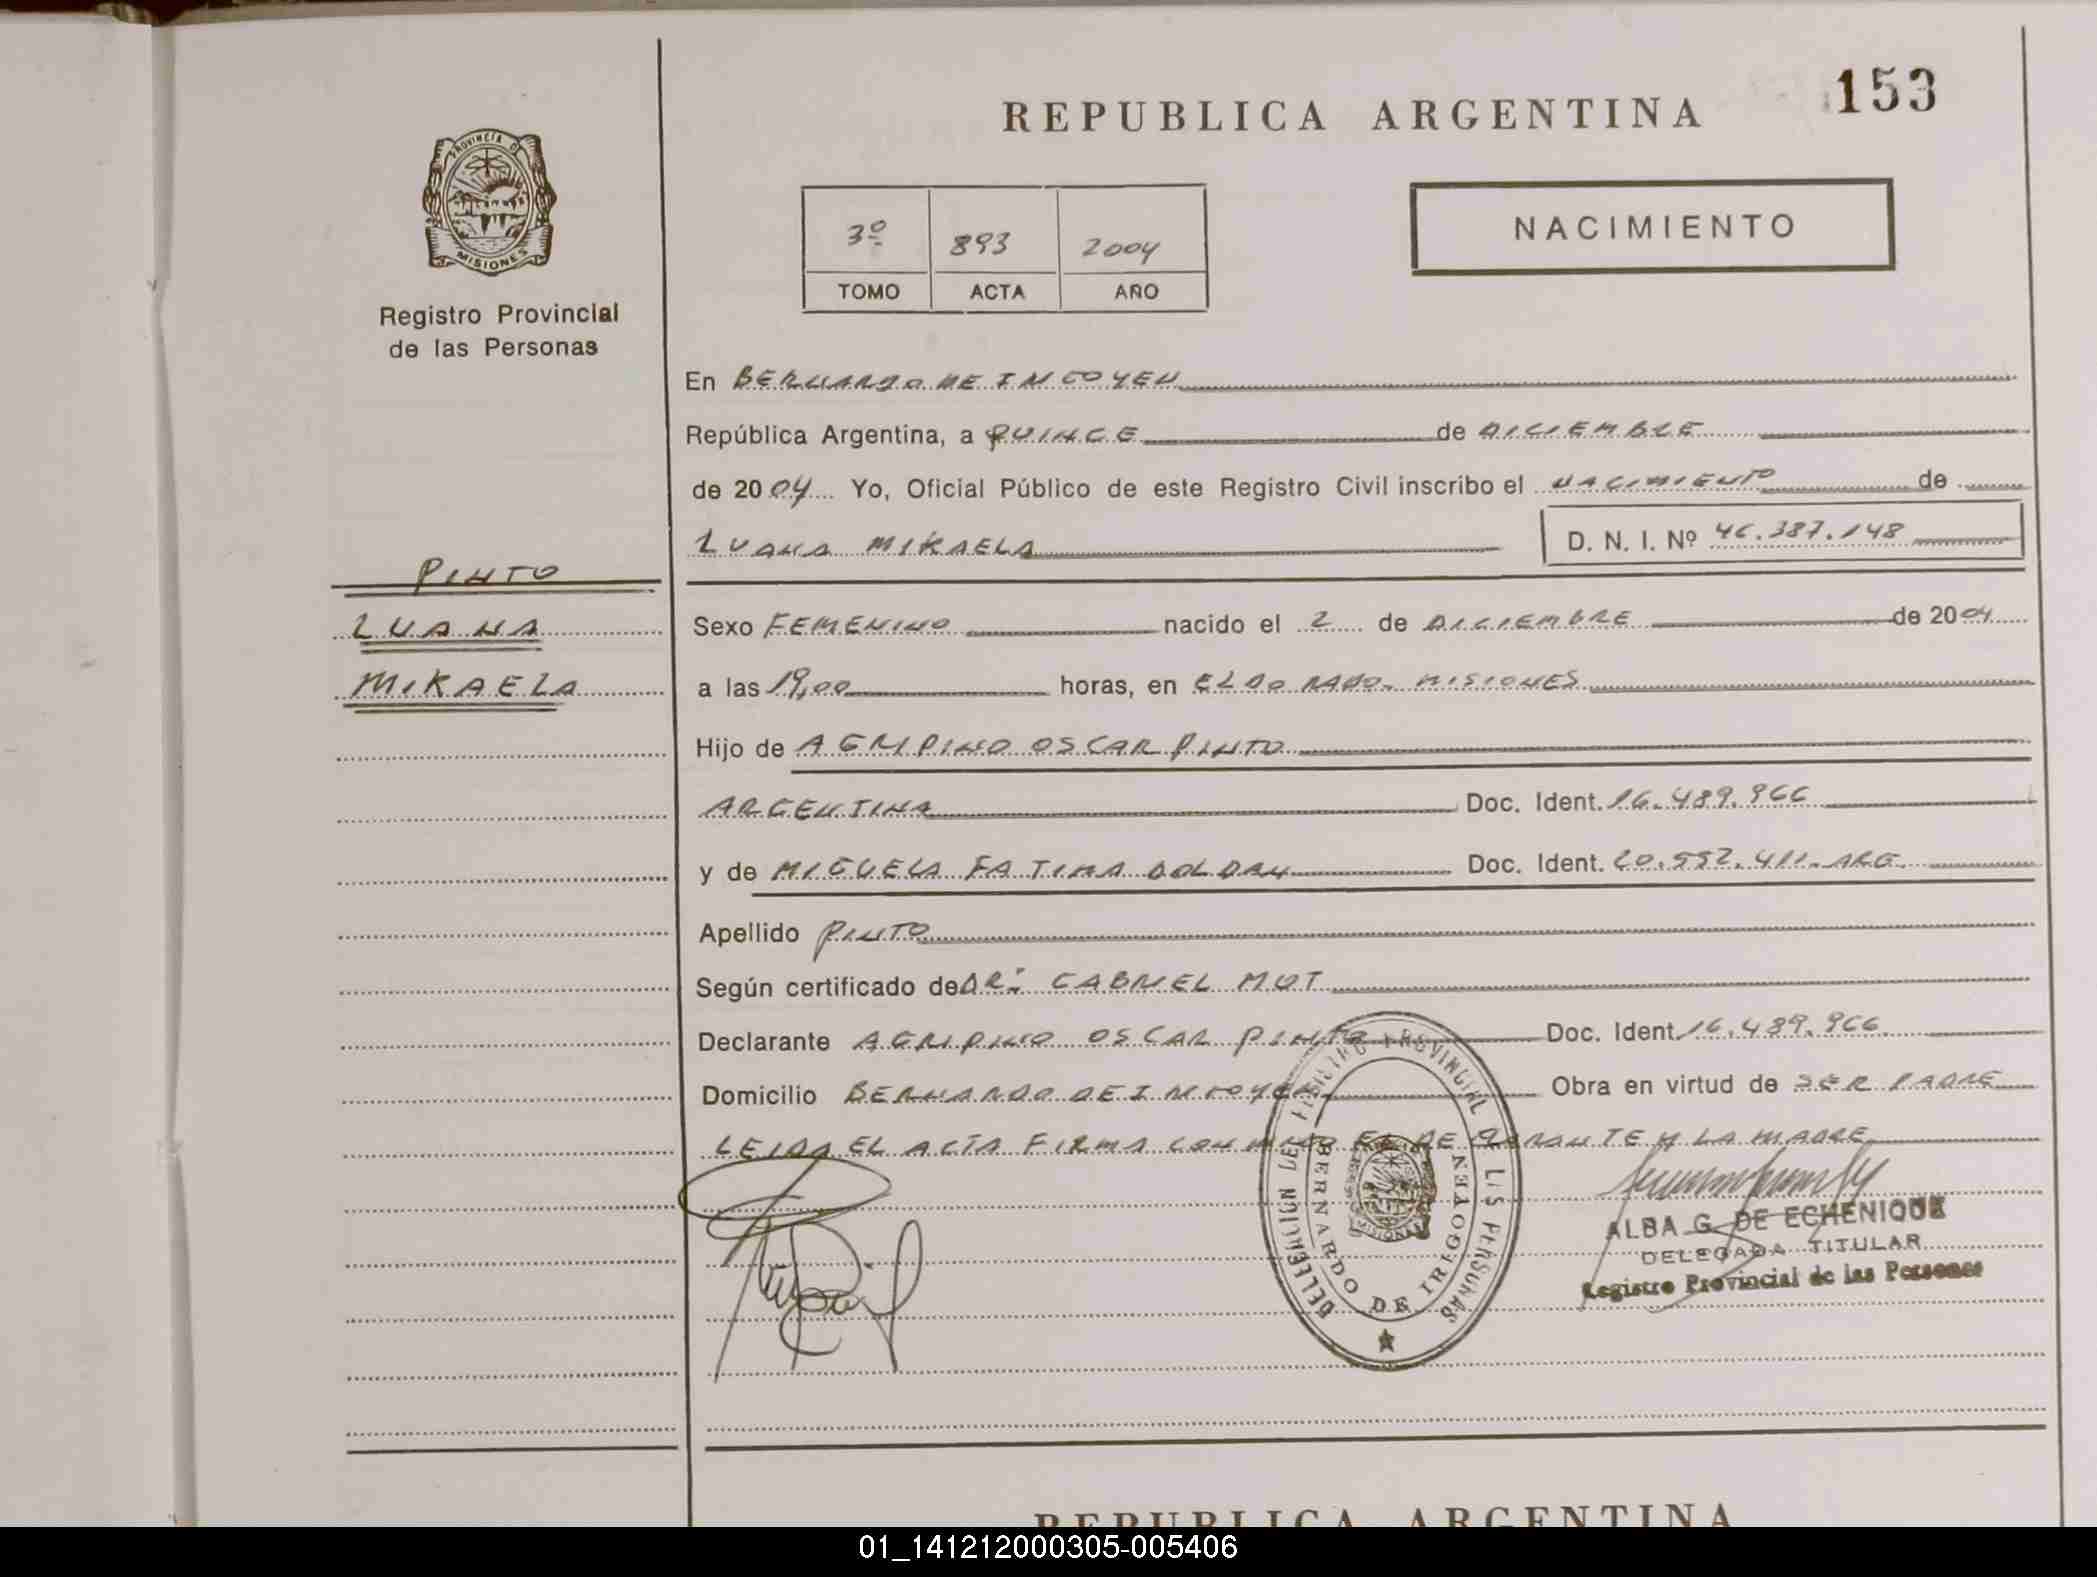 REPUBLICA ARGENTINA
153
PROVINCIA D
MISIONES
Registro Provincial
de las Personas
3º 893 2004
TOMO ACTA AÑO
NACIMIENTO
En BERNARDO DE IRIGOYEN
República Argentina, a QUINCE de DICIEMBRE
de 2004 Yo, Oficial Público de este Registro Civil inscribo el NACIMIENTO de
LUANA MIKAELA
D. N. I. Nº 46.387.148
PINTO
LUANA
MIKAELA
Sexo FEMENINO nacido el 2 de DICIEMBRE de 2004
a las 19,00 horas, en ELDORADO. MISIONES
Hijo de AGRIPINO OSCAR PINTO
ARGENTINA Doc. Ident. 16.489.966
y de MIGUELA FATIMA DOLDAN Doc. Ident. 20.552.411. ARG.
Apellido PINTO
Según certificado de DR: GABRIEL MOT
Declarante AGRIPINO OSCAR PINTO Doc. Ident. 16.489.966
Domicilio BERNARDO DE IRIGOYEN Obra en virtud de SER PADRE
LEIDA EL ACTA FIRMA CONMIGO EL DECLARANTE Y LA MADRE
DELEGACION DEL REGISTRO PROVINCIAL DE LAS PERSONAS
BERNARDO DE IRIGOYEN
MISIONES
ALBA G. DE ECHENIQUE
DELEGADA TITULAR
Registro Provincial de las Personas
REPUBLICA ARGENTINA
01_141212000305-005406